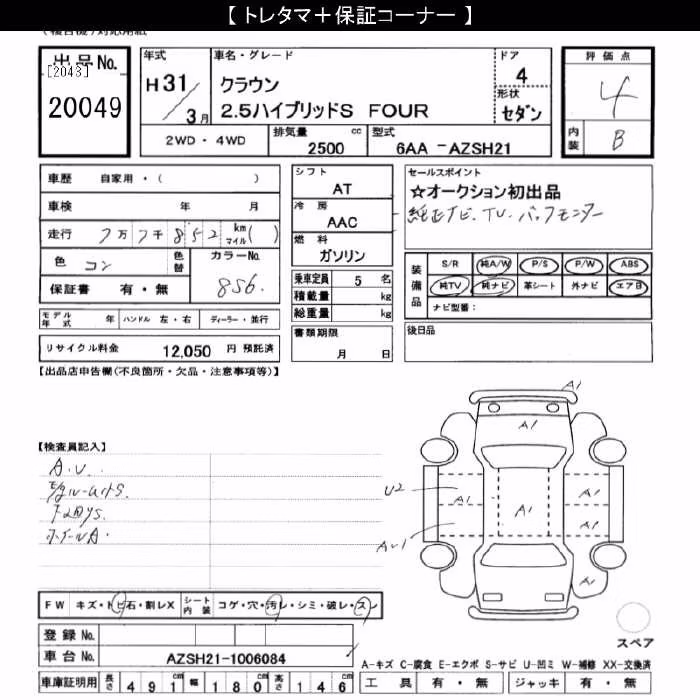 【 トレタマ＋保証コーナー 】
出品No.
[2043]
20049
年式
H 31
3月
車名・グレード
クラウン
2.5ハイブリッドS FOUR
ドア
4
形状
セダン
評価点
4
内装
B
2WD・4WD
排気量
cc
2500
型式
6AA －AZSH21
車歴 自家用・( )
車検 年 月
走行 7万7千852 km マイル( )
色 コン
色替
カラーNo.
8S6.
保証書 有・無
シフト
AT
冷房
AAC
燃料
ガソリン
乗車定員 5 名
積載量 kg
総重量 kg
セールスポイント
☆オークション初出品
純正ナビ. TV. バックモニター
装備品
S/R 純A/W P/S P/W ABS
純TV 純ナビ 革シート 外ナビ エア日
ナビ型番：
モデル年式 年 ハンドル 左・右 ディーラー・並行
リサイクル料金 12,050 円 預託済
書類期限
月 日
後日品
【出品店申告欄(不良箇所・欠品・注意事項等)】
【検査員記入】
A.U.
ホイールA.
A1
A1
U2
A1
A1
A1
A1
A1
FW キズ・トビ石・割レX シート内装 コゲ・穴・汚レ・シミ・破レ・スレ
登録No.
車台No. AZSH21-1006084
スペア
A-キズ C-腐食 E-エクボ S-サビ U-凹ミ W-補修 XX-交換済
車庫証明用 長さ 491 cm 幅 180 cm 高さ 146 cm
工具 有・無 ジャッキ 有・無